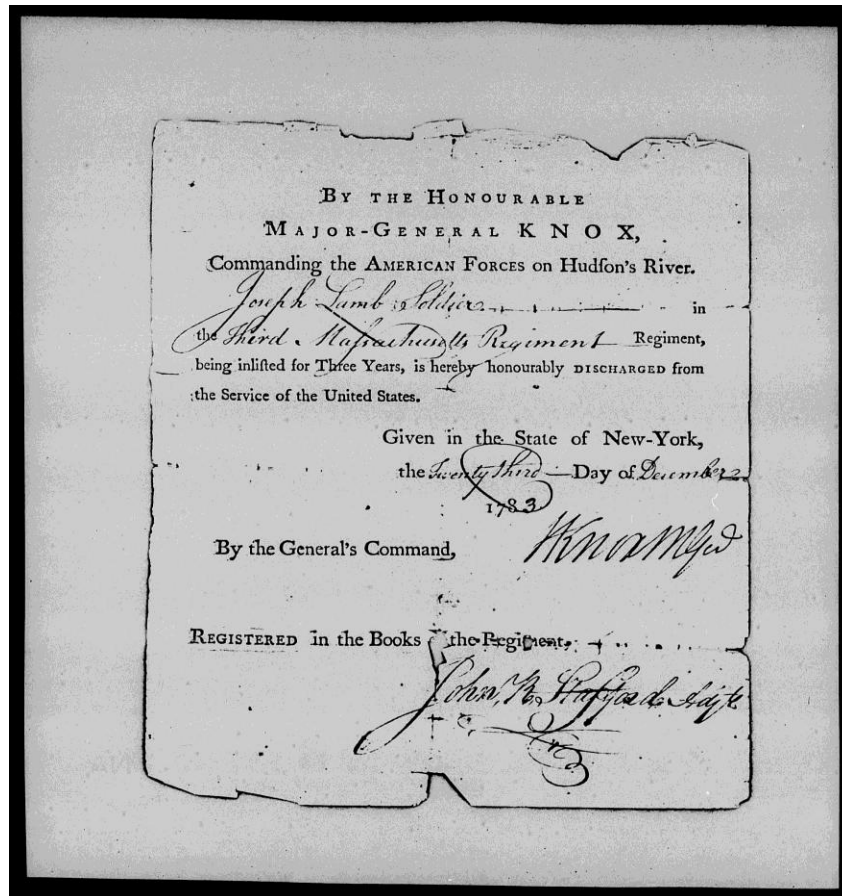 BY THE HONOURABLE
MAJOR-GENERAL KNOX,
Commanding the AMERICAN FORCES on Hudſon's River.
Joseph Lamb Soldier in
the Third Maſsachusetts Regiment Regiment,
being inliſted for Three Years, is hereby honourably DISCHARGED from
the Service of the United States.
Given in the State of New-York,
the Twenty third Day of December
1783
By the General's Command,
HKnox MGen
REGISTERED in the Books the Regiment,
John, Adjt